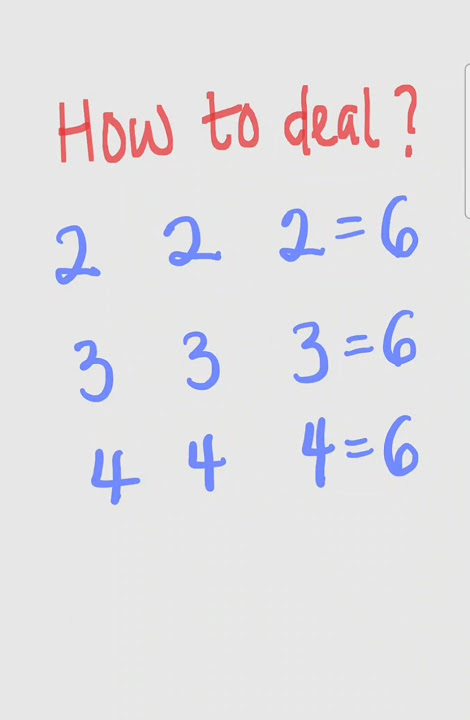 How to deal?
2 2 2=6
3 3 3=6
4 4 4=6